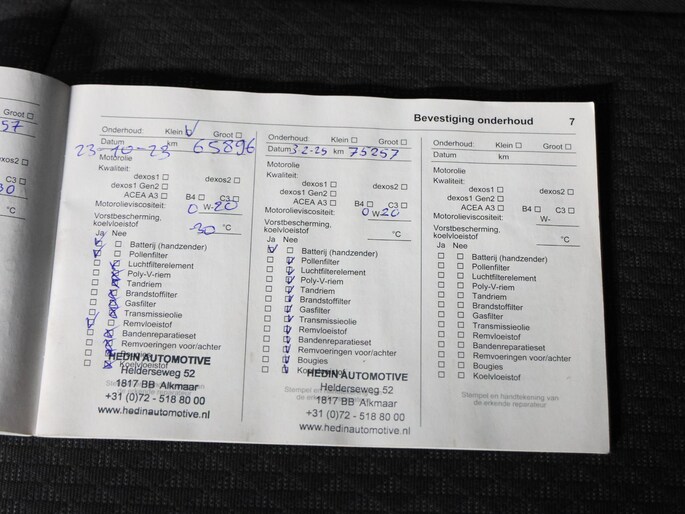 Bevestiging onderhoud 7
Groot
57
dexos2
C3
30
°C
Onderhoud: Klein Groot
Datum 23-10-23 km 65896
Motorolie
Kwaliteit:
dexos1 dexos2
dexos1 Gen2
ACEA A3 B4 C3
Motorolieviscositeit: 0 W-20
Vorstbescherming,
koelvloeistof -30 °C
Ja Nee
Batterij (handzender)
Pollenfilter
Luchtfilterelement
Poly-V-riem
Tandriem
Brandstoffilter
Gasfilter
Transmissieolie
Remvloeistof
Bandenreparatieset
Remvoeringen voor/achter
Koelvloeistof
HEDIN AUTOMOTIVE
Helderseweg 52
1817 BB Alkmaar
+31 (0)72 - 518 80 00
www.hedinautomotive.nl
Onderhoud: Klein Groot
Datum 3-2-25 km 75257
Motorolie
Kwaliteit:
dexos1 dexos2
dexos1 Gen2
ACEA A3 B4 C3
Motorolieviscositeit: 0 W-20
Vorstbescherming,
koelvloeistof °C
Ja Nee
Batterij (handzender)
Pollenfilter
Luchtfilterelement
Poly-V-riem
Tandriem
Brandstoffilter
Gasfilter
Transmissieolie
Remvloeistof
Bandenreparatieset
Remvoeringen voor/achter
Bougies
HEDIN AUTOMOTIVE
Helderseweg 52
1817 BB Alkmaar
+31 (0)72 - 518 80 00
www.hedinautomotive.nl
Onderhoud: Klein Groot
Datum km
Motorolie
Kwaliteit:
dexos1 dexos2
dexos1 Gen2
ACEA A3 B4 C3
Motorolieviscositeit: W-
Vorstbescherming,
koelvloeistof °C
Ja Nee
Batterij (handzender)
Pollenfilter
Luchtfilterelement
Poly-V-riem
Tandriem
Brandstoffilter
Gasfilter
Transmissieolie
Remvloeistof
Bandenreparatieset
Remvoeringen voor/achter
Bougies
Koelvloeistof
Stempel en handtekening van
de erkende reparateur